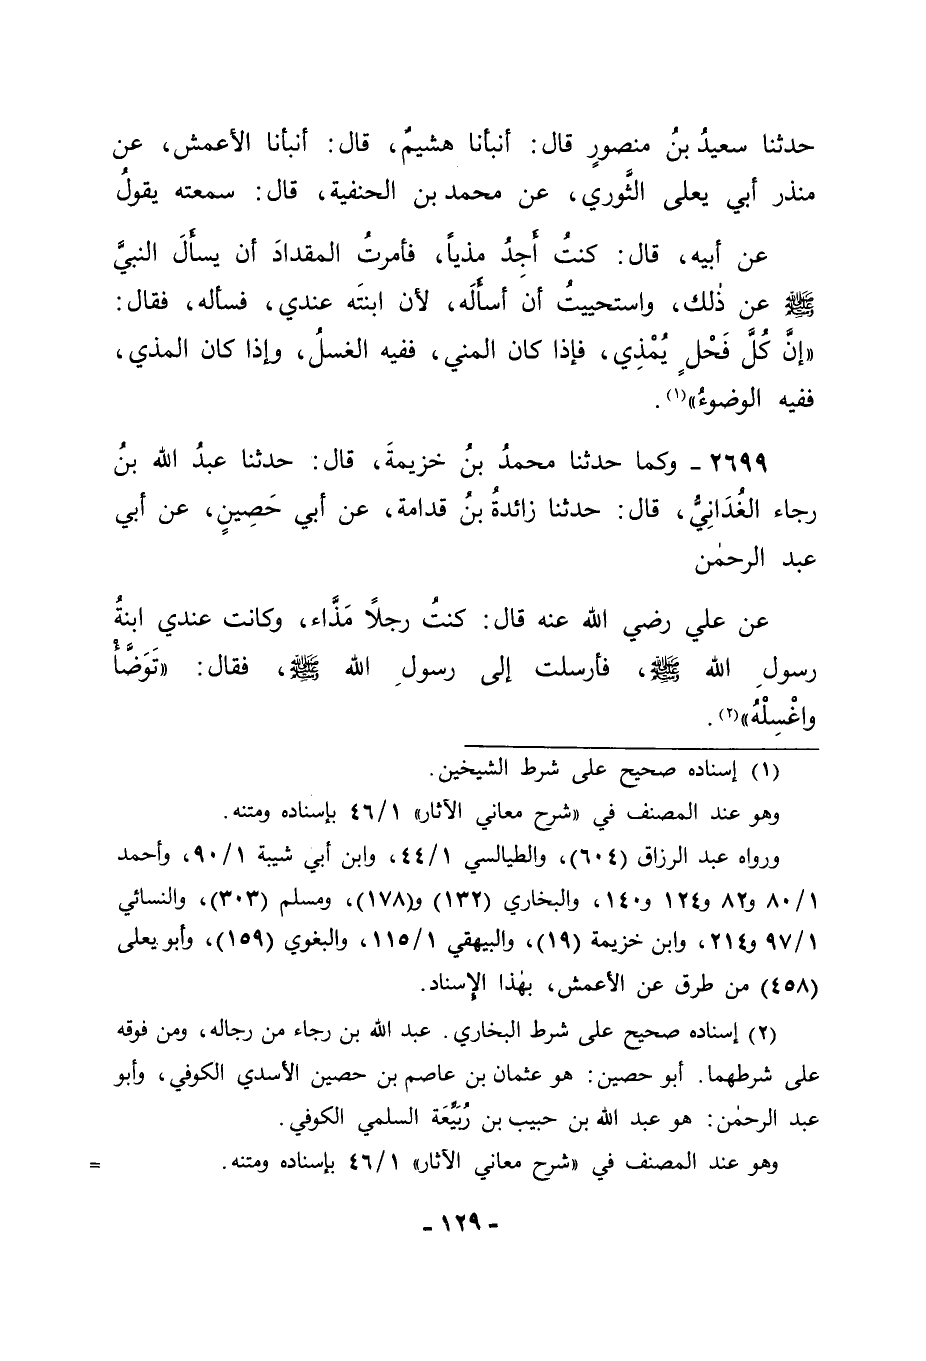 حدثنا سعيدُ بنُ منصورٍ قال: أنبأنا هشيمٌ، قال: أنبأنا الأعمش، عن
منذر أبي يعلى الثَّوري، عن محمد بن الحنفية، قال: سمعته يقولُ
عن أبيه، قال: كنتُ أَجِدُ مذياً، فأمرتُ المقدادَ أن يسأَلَ النبيَّ
ﷺ عن ذٰلك، واستحييتُ أن أسأَلَه، لأن ابنتَه عندي، فسأله، فقال:
«إنَّ كُلَّ فَحْلٍ يُمْذِي، فإذا كان المني، ففيه الغسلُ، وإذا كان المذي،
ففيه الوضوءُ»(١).
٢٦٩٩ ـ وكما حدثنا محمدُ بنُ خزيمةَ، قال: حدثنا عبدُ الله بنُ
رجاء الغُدَانِيُّ، قال: حدثنا زائدةُ بنُ قدامة، عن أبي حَصِينٍ، عن أبي
عبد الرحمٰن
عن علي رضي الله عنه قال: كنتُ رجلاً مَذَّاء، وكانت عندي ابنةُ
رسولِ الله ﷺ، فأرسلت إلى رسولِ الله ﷺ، فقال: «تَوَضَّأْ
واغْسِلْهُ»(٢).
(١) إسناده صحيح على شرط الشيخين.
وهو عند المصنف في «شرح معاني الآثار» ٤٦/١ بإسناده ومتنه.
ورواه عبد الرزاق (٦٠٤)، والطيالسي ٤٤/١، وابن أبي شيبة ٩٠/١، وأحمد
٨٠/١ و٨٢ و١٢٤ و١٤٠، والبخاري (١٣٢) و(١٧٨)، ومسلم (٣٠٣)، والنسائي
٩٧/١ و٢١٤، وابن خزيمة (١٩)، والبيهقي ١١٥/١، والبغوي (١٥٩)، وأبو يعلى
(٤٥٨) من طرق عن الأعمش، بهٰذا الإسناد.
(٢) إسناده صحيح على شرط البخاري. عبد الله بن رجاء من رجاله، ومن فوقه
على شرطهما. أبو حصين: هو عثمان بن عاصم بن حصين الأسدي الكوفي، وأبو
عبد الرحمٰن: هو عبد الله بن حبيب بن رُبَيِّعَة السلمي الكوفي.
وهو عند المصنف في «شرح معاني الآثار» ٤٦/١ بإسناده ومتنه. =
- ١٢٩ -